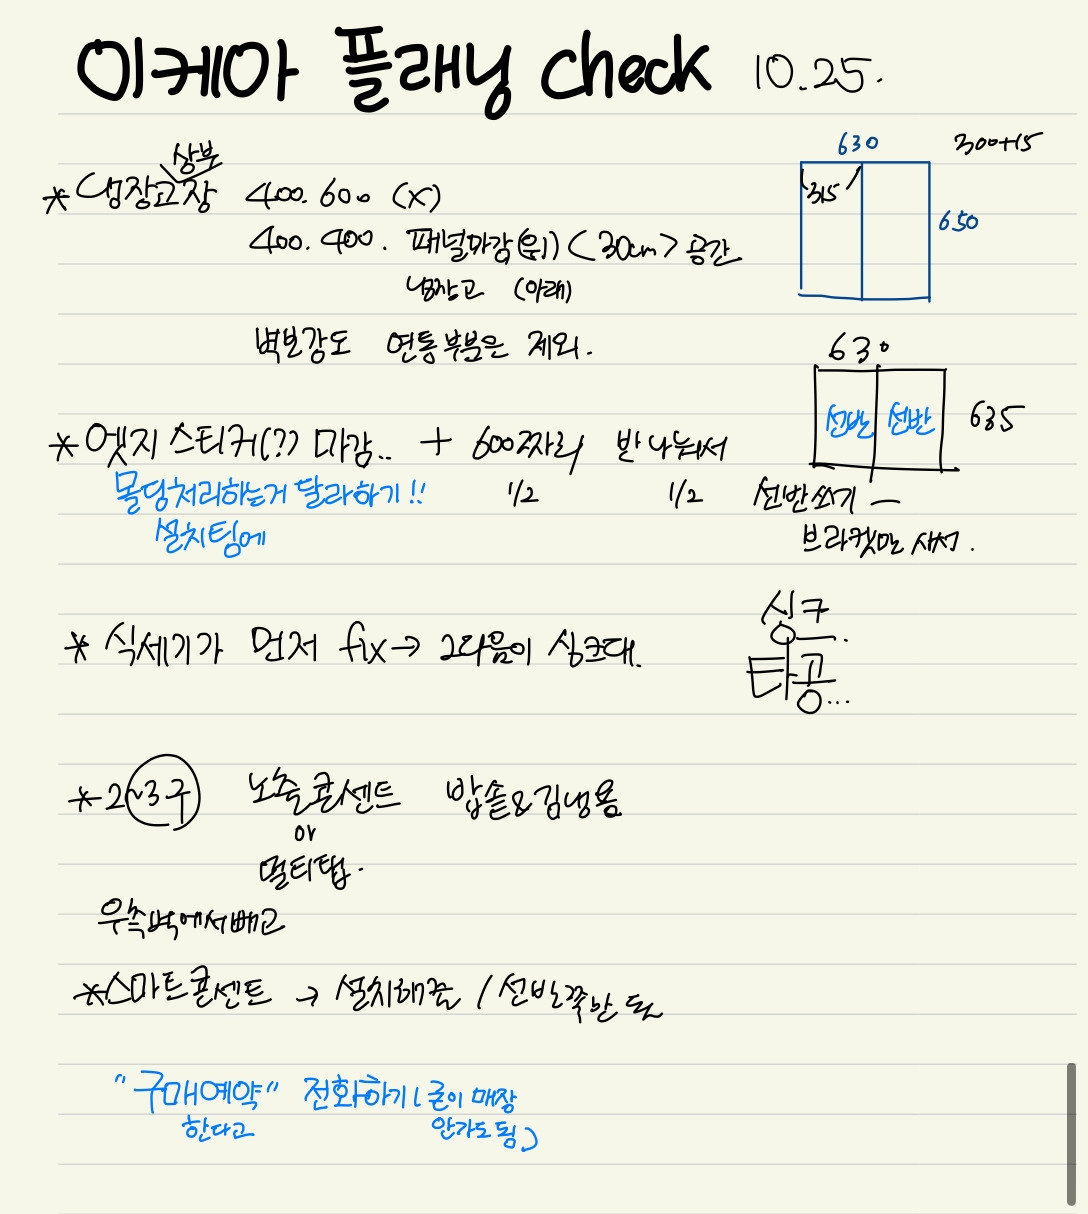 이케아 플래닝 check 10.25.
상부
* 냉장고장 400.600 (x)
400.400. 패널마감(위) <30cm> 공간
냉장고 (아래)
벽보강도 연통부분은 제외.
630
300+15
315
650
630
선반 선반
635
* 엣지 스티커(??) 마감.. + 600짜리 반 나눠서
1/2 1/2
선반쓰기 —
브라켓만 사서.
몰딩처리하는거 달라하기!!
설치팀에
* 식세기가 먼저 fix → 그다음이 싱크대.
싱구..
타공...
* 2~3구 노출콘센트 밥솥&김냉용
or
멀티탭.
우측벽에서빼고
* 스마트콘센트 → 설치해줌 / 선반쪽안됨
"구매예약" 전화하기 (굳이 매장
한다고 안가도됨)